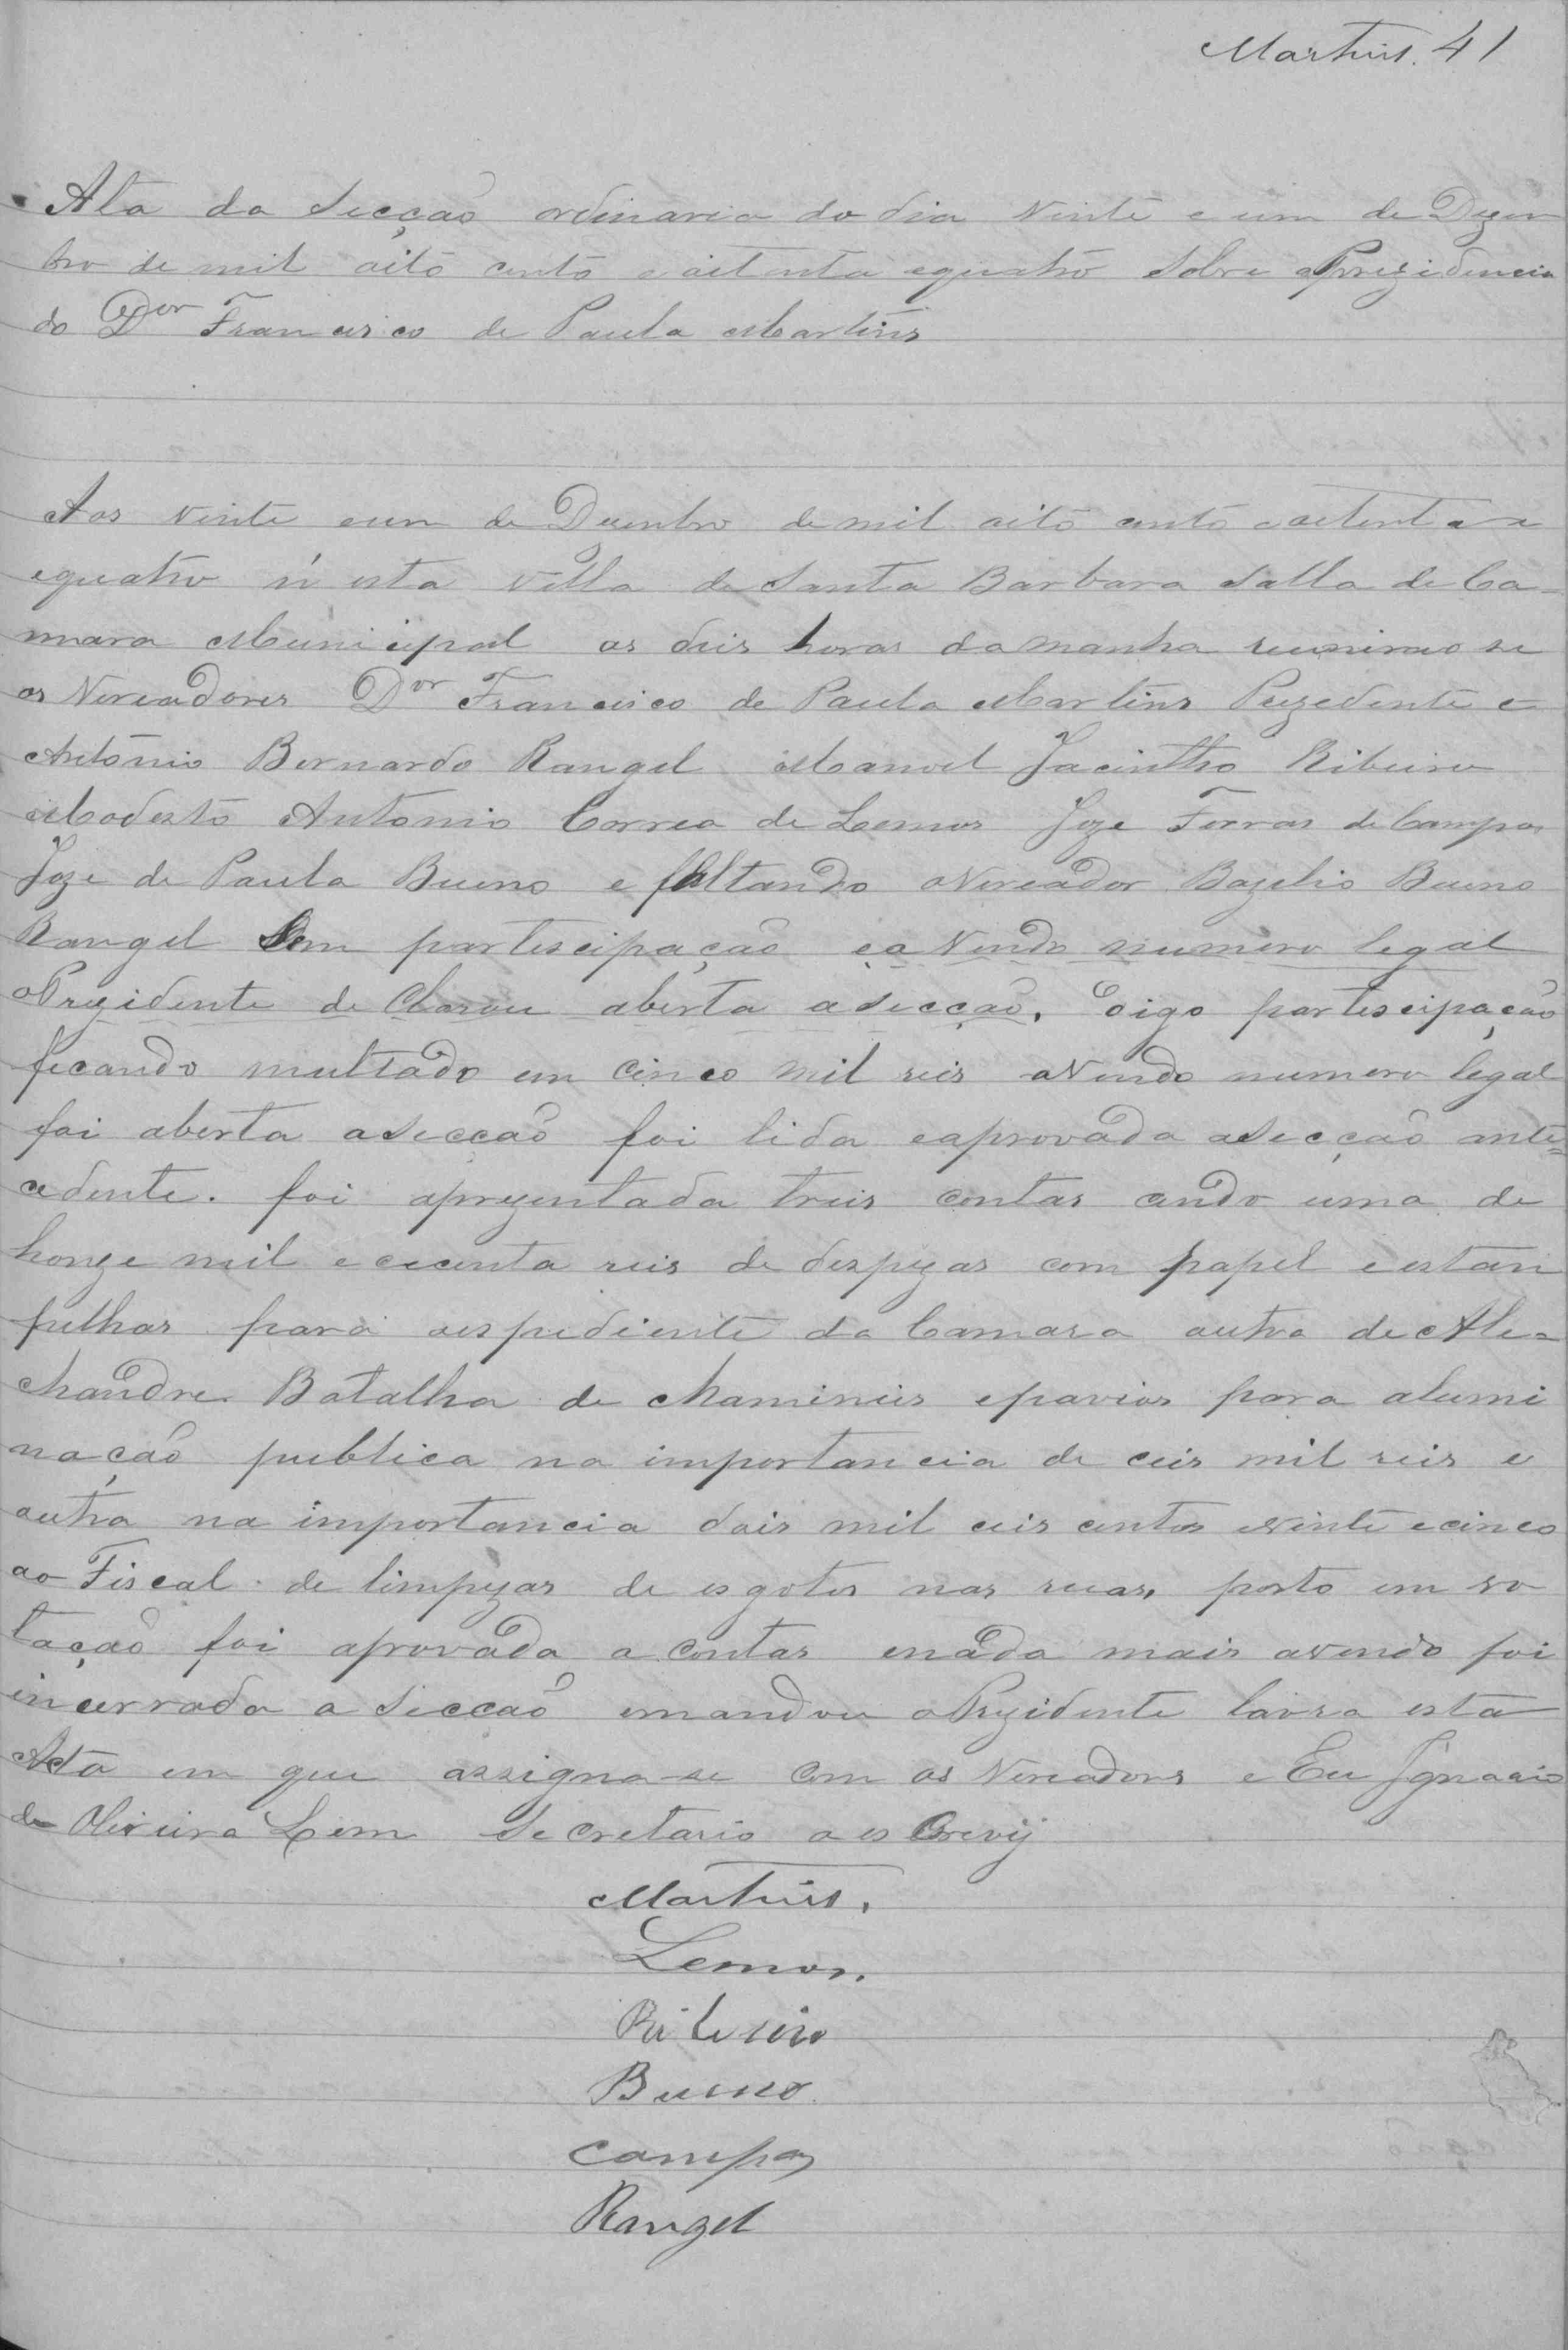 Martins. 41
Ata da Secção ordinaria do dia Vinte e um de Dezem
bro de mil oitô centô e oitenta equatro sobre aPrezidencia
do Dor Francisco de Paula Martins
Aos Vinte eum de Dezembro de mil oitô centô eoitenta e
equatro n'esta Villa de Santa Barbara Salla de Ca-
mara Municipal as deis horas da manha reunirão se
os Vereadores Dor Francisco de Paula Martins Prezedente e
Antônio Bernardo Rangel Manoel Jacintho Ribeiro
Modesto Antonio Correa de Lemos Joze Ferras de Campos
Joze de Paula Bueno e faltando oVereador Bazelio Bueno
Rangel Sem partescipação ea Vendo numero legal
oPrezidente de Clarou aberta asecção. Digo partescipação
ficando multado em Cinco mil reis aVendo numero legal
foi aberta asecção foi lida eaprovada asecção ante=
cedente. foi aprezentada treis contas cendo uma de
honze mil e cecenta reis de despezas com papel e estan
pilhas para oespediente da Camara outra de Ale=
chandre Batalha de Chamineis epavios para alumi
nação publica na importancia de ceis mil reis e
outra na importancia dois mil ceis centos evinte ecinco
ao Fiscal de limpezas de esgotos nas ruas, posto em vo
tação foi aprovada a contas enada mais avendo foi
incerrada a Secção emandou oPrezidente lavra esta
Acta em que assigna-se com os Vereadores e Eu Ignacio
de Oliveira Leme Secretario a es Crevij
Martins.
Lemos.
Ribeiro
Bueno.
Campos
Rangel